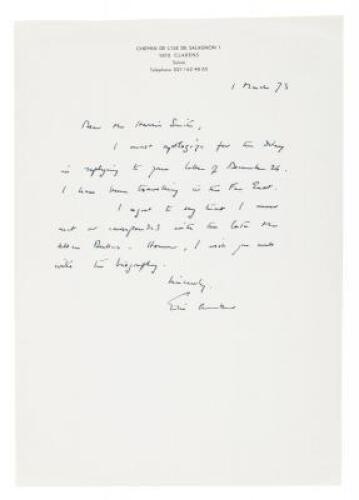 CHEMIN DE L'ILE DE SALAGNON 1
1815 CLARENS
Suisse
Téléphone 021/62 48 65
1 March 75
Dear Mr Harris Smith,
I must apologize for the delay
in replying to your letter of December 26.
I have been travelling in the Far East.
I regret to say that I never
met or corresponded with the late Mr
Allen Dulles. However, I wish you well
with the biography.
Sincerely,
Eric Ambler